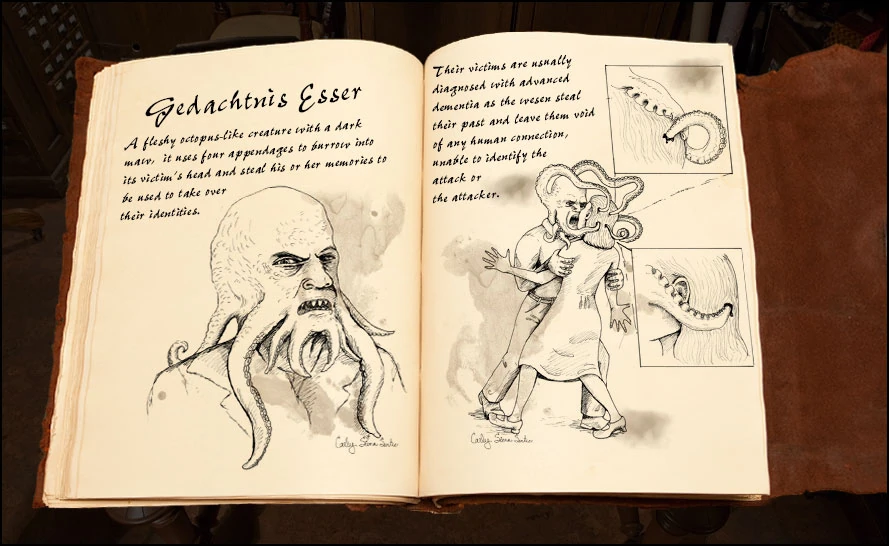 Gedachtnis Esser
A fleshy octopus-like creature with a dark
maw, it uses four appendages to burrow into
its victim's head and steal his or her memories to
be used to take over
their identities.
Their victims are usually
diagnosed with advanced
dementia as the wesen steal
their past and leave them void
of any human connection,
unable to identify the
attack or
the attacker.